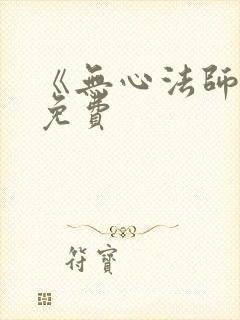 《無心法師
免費
符寶